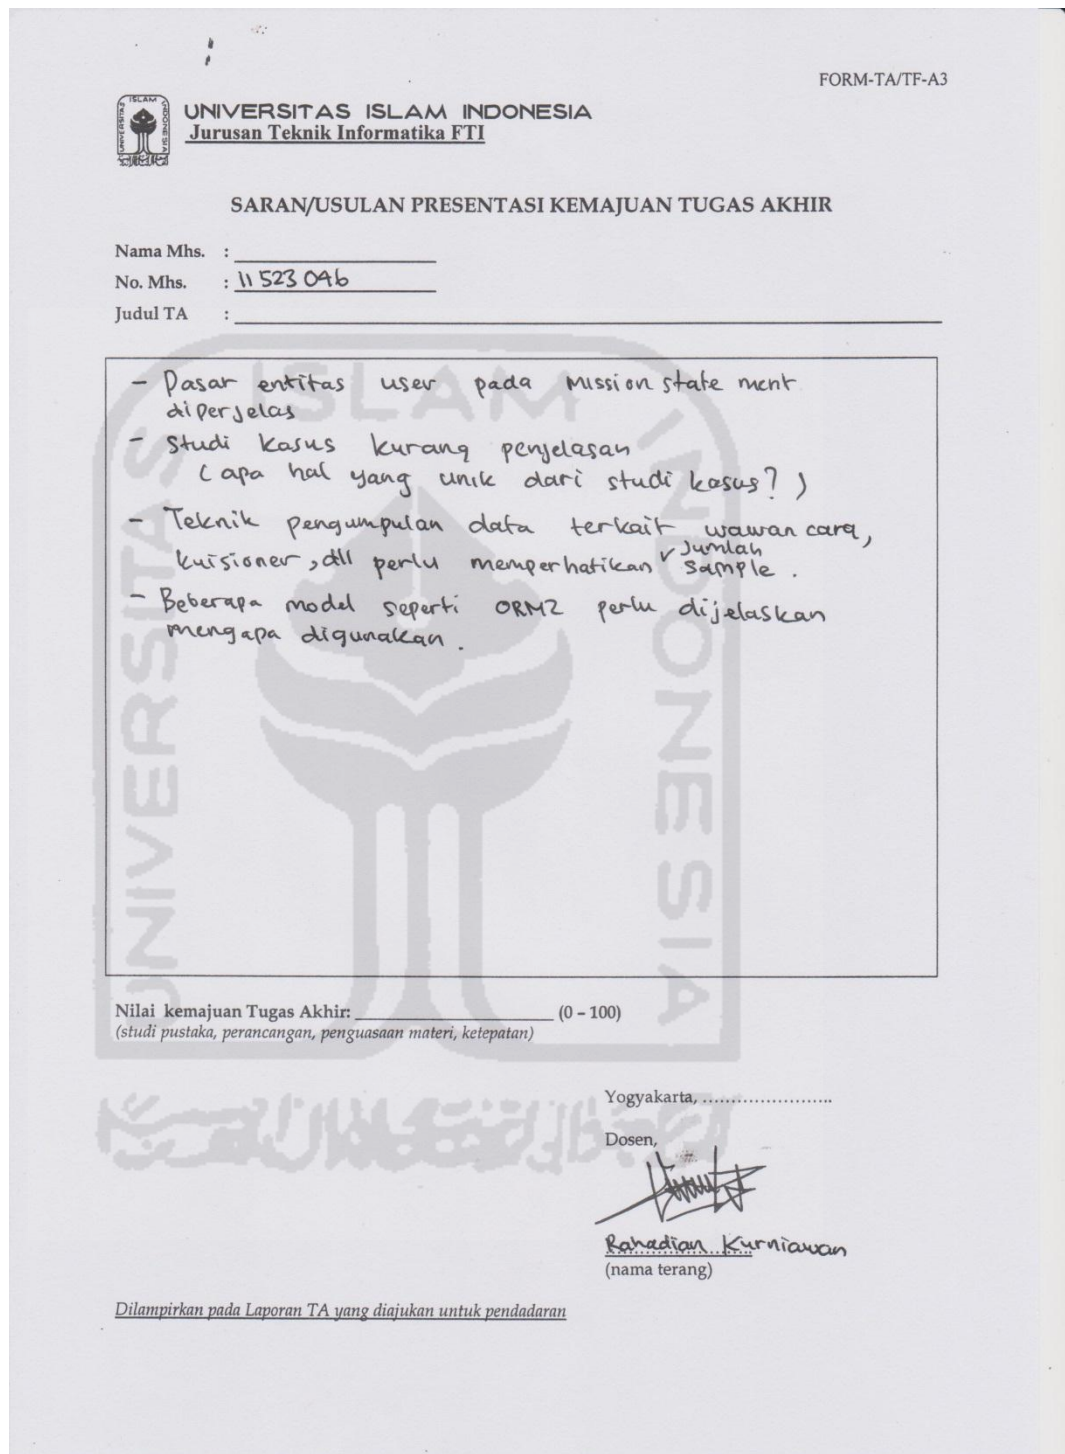 FORM-TA/TF-A3
ISLAM
UNIVERSITAS
INDONESIA
UNIVERSITAS ISLAM INDONESIA
Jurusan Teknik Informatika FTI
SARAN/USULAN PRESENTASI KEMAJUAN TUGAS AKHIR
Nama Mhs. :
No. Mhs. : 11 523 046
Judul TA :
- Dasar entitas user pada Mission state ment
diperjelas
- Studi kasus kurang penjelasan
( apa hal yang unik dari studi kasus? )
- Teknik pengumpulan data terkait wawan cara,
kuisioner, dll perlu memperhatikan jumlah sample.
- Beberapa model seperti ORM2 perlu dijelaskan
mengapa digunakan.
ISLAM
UNIVERSITAS
INDONESIA
Nilai kemajuan Tugas Akhir: (0 – 100)
(studi pustaka, perancangan, penguasaan materi, ketepatan)
Yogyakarta, ........................
Dosen,
Rahadian Kurniawan
(nama terang)
Dilampirkan pada Laporan TA yang diajukan untuk pendadaran